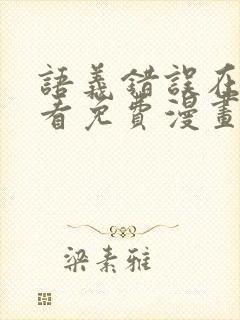 語義錯誤在
看免費漫畫
梁素雅